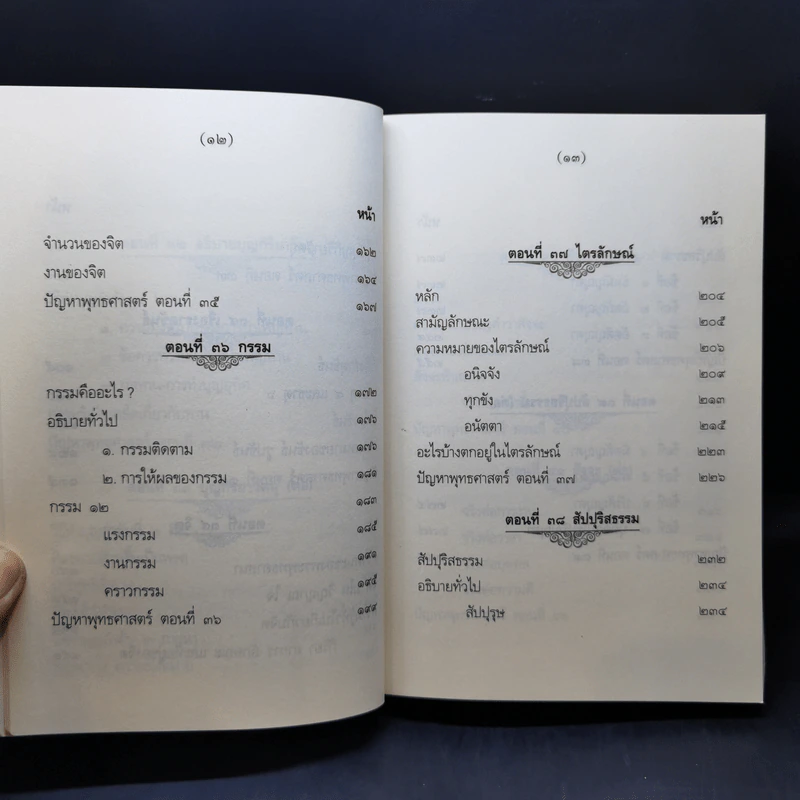 (๑๒)
หน้า
จำนวนของจิต ๑๖๒
งานของจิต ๑๖๔
ปัญหาพุทธศาสตร์ ตอนที่ ๓๕ ๑๖๗
ตอนที่ ๓๖ กรรม
กรรมคืออะไร ? ๑๗๒
อธิบายทั่วไป ๑๗๖
๑. กรรมติดตาม ๑๗๖
๒. การให้ผลของกรรม ๑๘๑
กรรม ๑๒ ๑๘๓
แรงกรรม ๑๘๕
งานกรรม ๑๙๑
คราวกรรม ๑๙๕
ปัญหาพุทธศาสตร์ ตอนที่ ๓๖ ๑๙๙
(๑๓)
หน้า
ตอนที่ ๓๗ ไตรลักษณ์
หลัก ๒๐๔
สามัญลักษณะ ๒๐๕
ความหมายของไตรลักษณ์ ๒๐๖
อนิจจัง ๒๐๙
ทุกขัง ๒๑๓
อนัตตา ๒๑๕
อะไรบ้างตกอยู่ในไตรลักษณ์ ๒๒๓
ปัญหาพุทธศาสตร์ ตอนที่ ๓๗ ๒๒๖
ตอนที่ ๓๘ สัปปุริสธรรม
สัปปุริสธรรม ๒๓๒
อธิบายทั่วไป ๒๓๔
สัปปุรุษ ๒๓๔